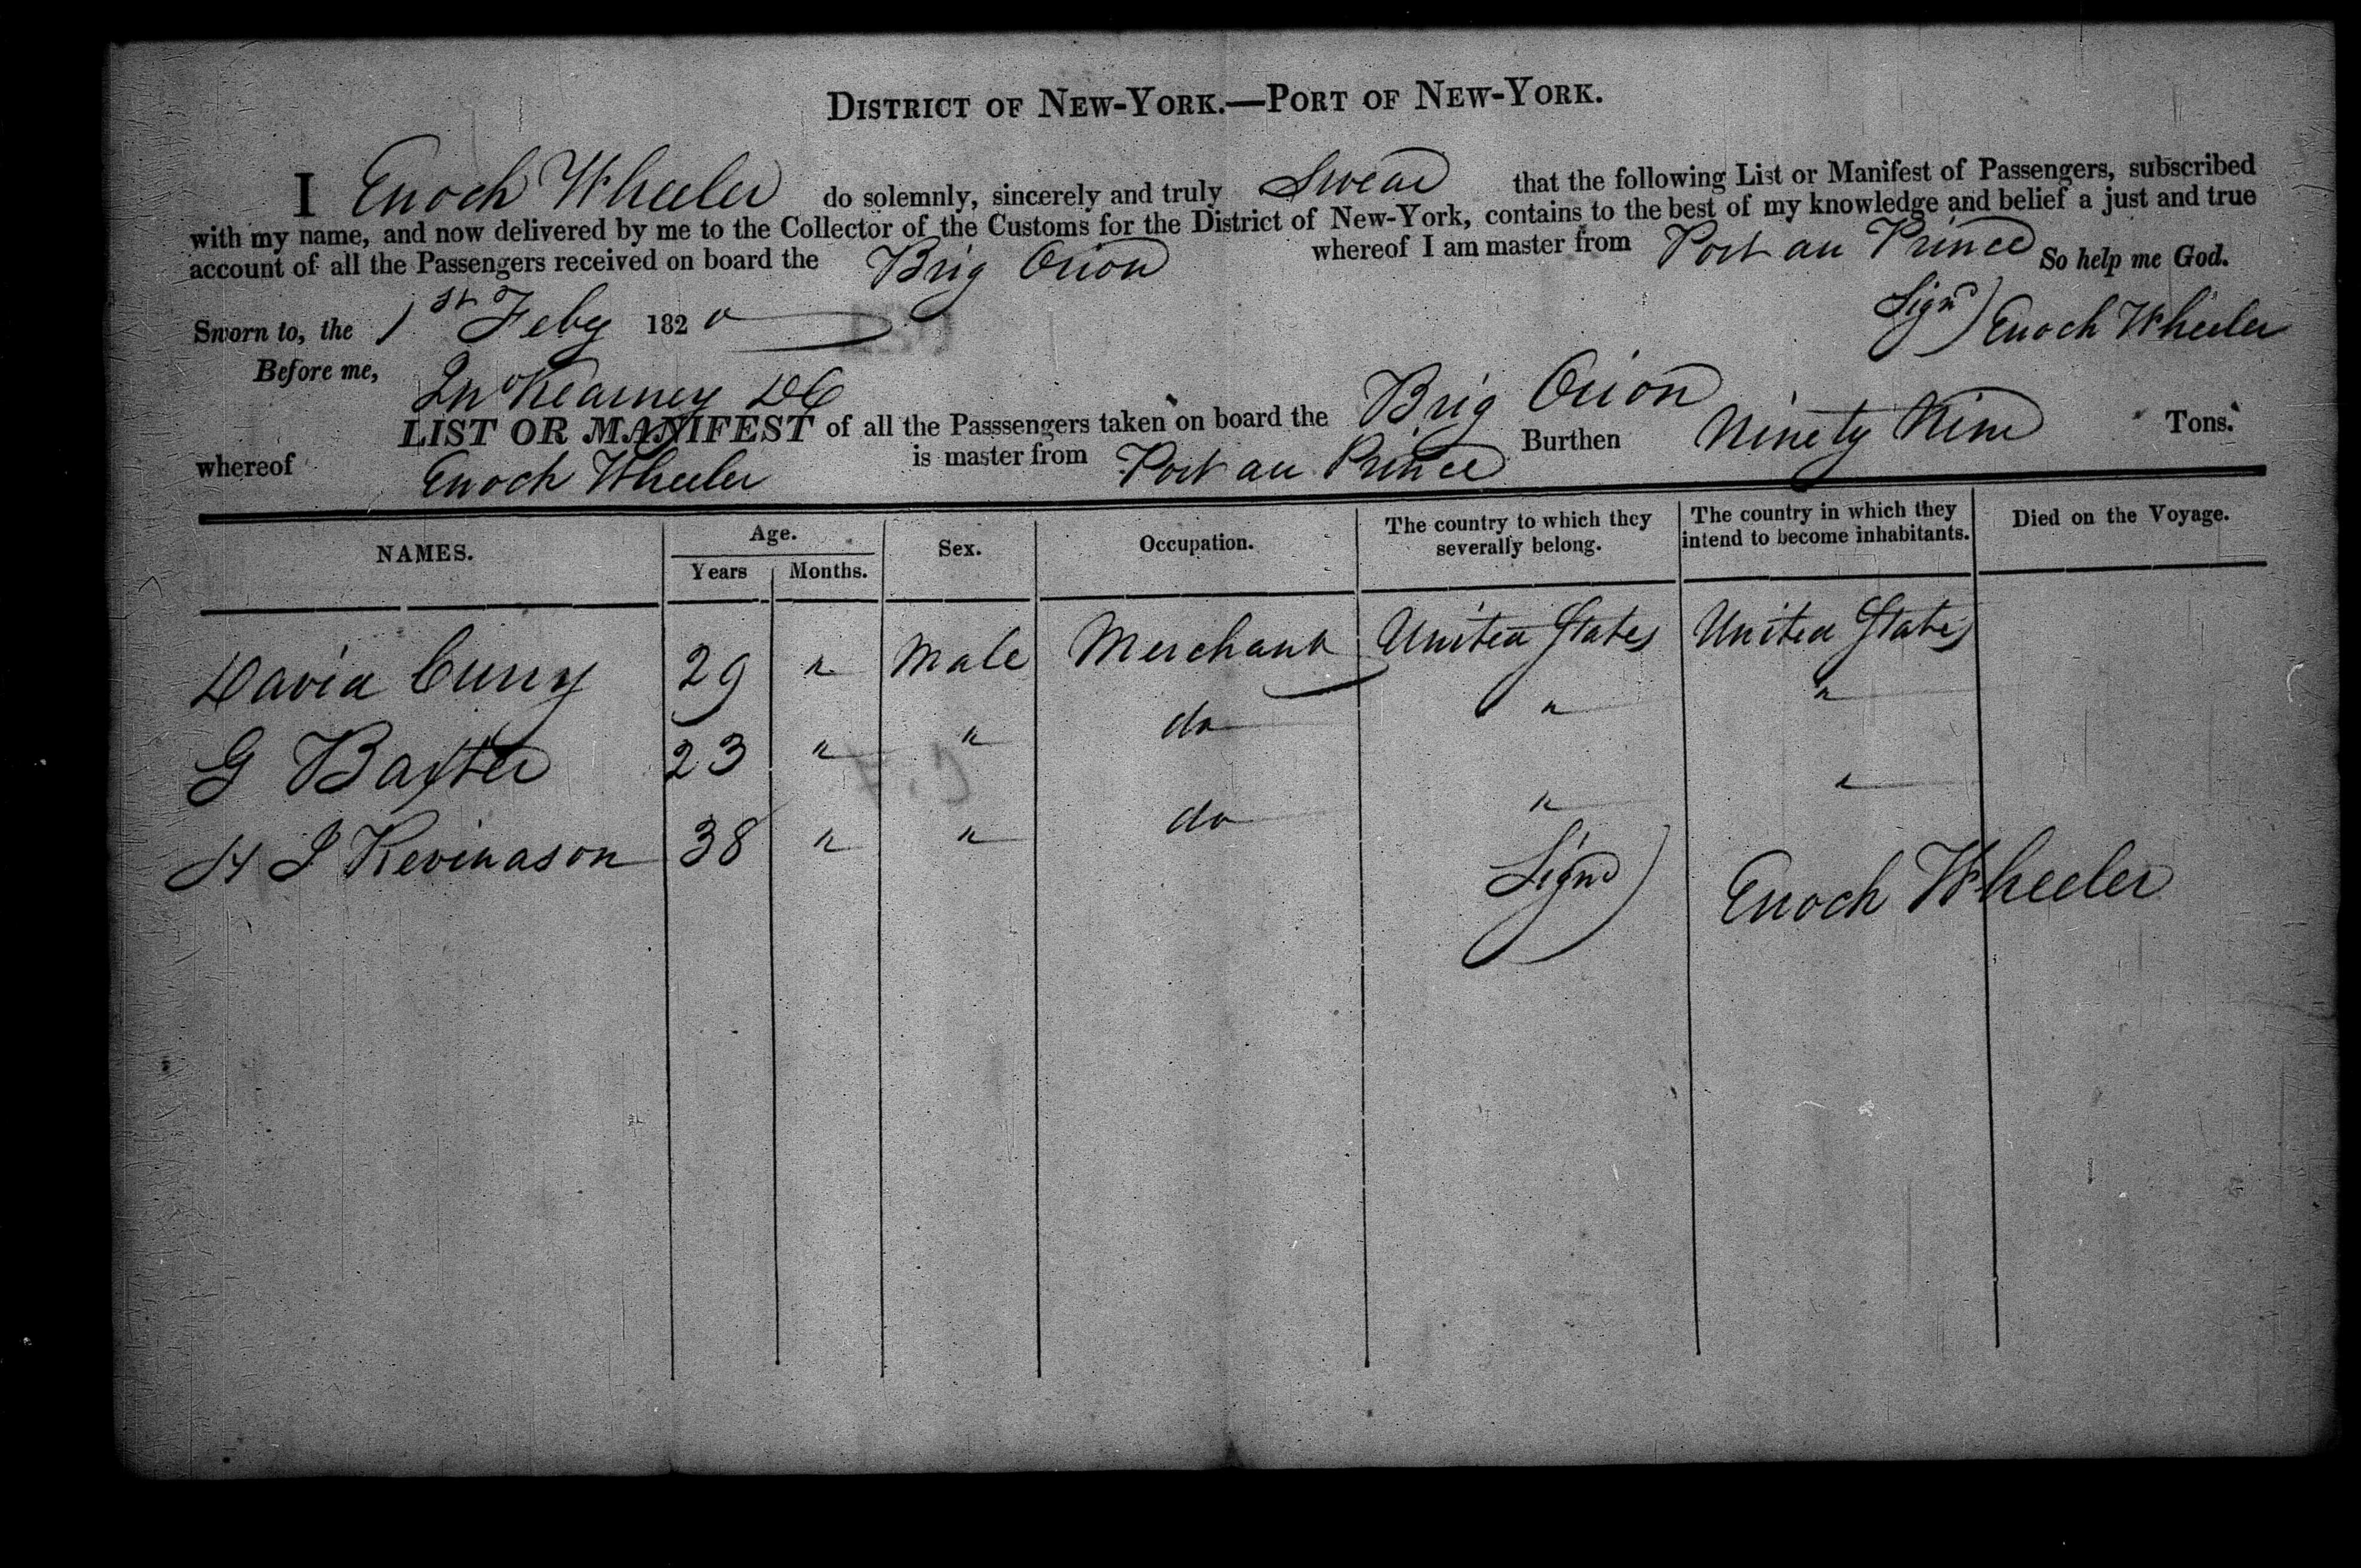 DISTRICT OF NEW-YORK.—PORT OF NEW-YORK.
I Enoch Wheeler do solemnly, sincerely and truly Swear that the following List or Manifest of Passengers, subscribed
with my name, and now delivered by me to the Collector of the Customs for the District of New-York, contains to the best of my knowledge and belief a just and true
account of all the Passengers received on board the Brig Orion whereof I am master from Port au Prince So help me God.
Sworn to, the 1st Feby 1820 Signd) Enoch Wheeler
Before me, Kearney DC
LIST OR MANIFEST of all the Passsengers taken on board the Brig Orion Burthen Ninety Nine Tons.
whereof Enoch Wheeler is master from Port au Prince
NAMES. Age. Years Months. Sex. Occupation. The country to which they severally belong. The country in which they intend to become inhabitants. Died on the Voyage.
David Curry 29 " Male Merchant United States United States
G Baxter 23 " " do " "
H J 38 " " do " "
Signd) Enoch Wheeler